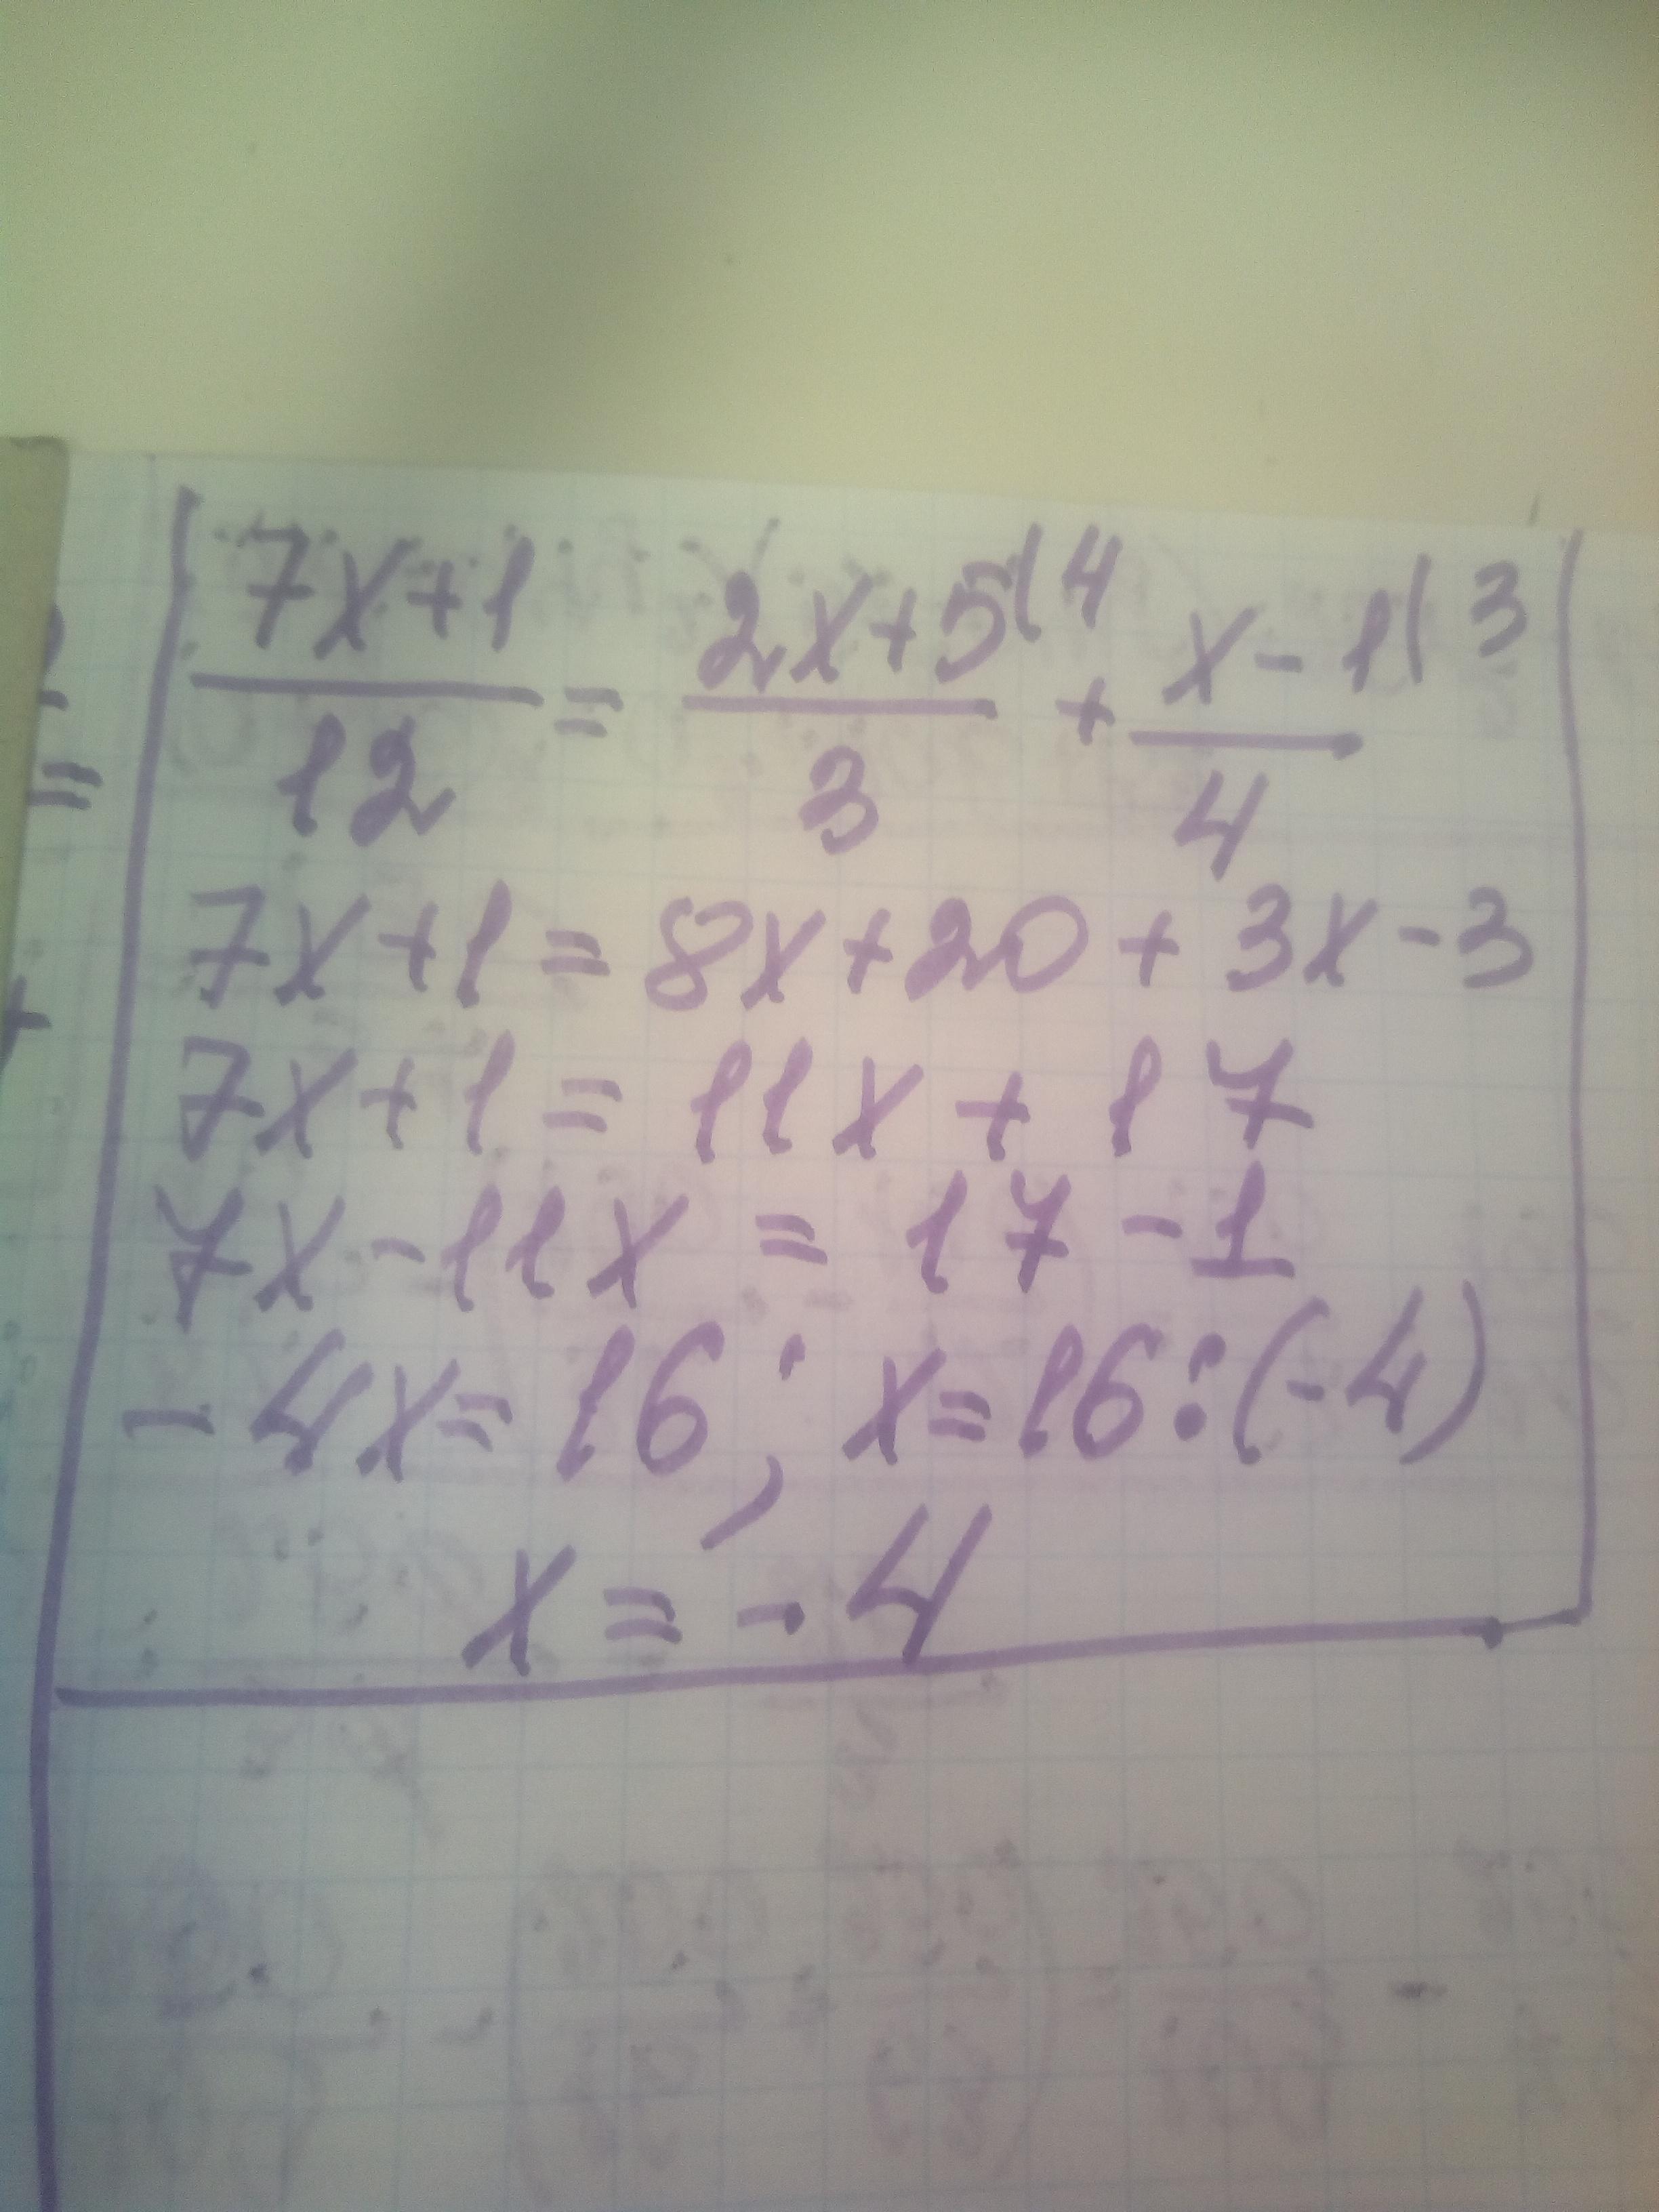 7x+1/12 = 2x+5(4/3 + x-1(3/4
7x+1=8x+20+3x-3
7x+1=11x+17
7x-11x=17-1
-4x=16; x=16:(-4)
x=-4